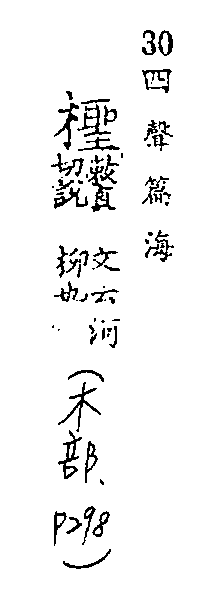 30 四聲篇海
檉 敕貞
切說
文云河
柳也
(木部、P298)